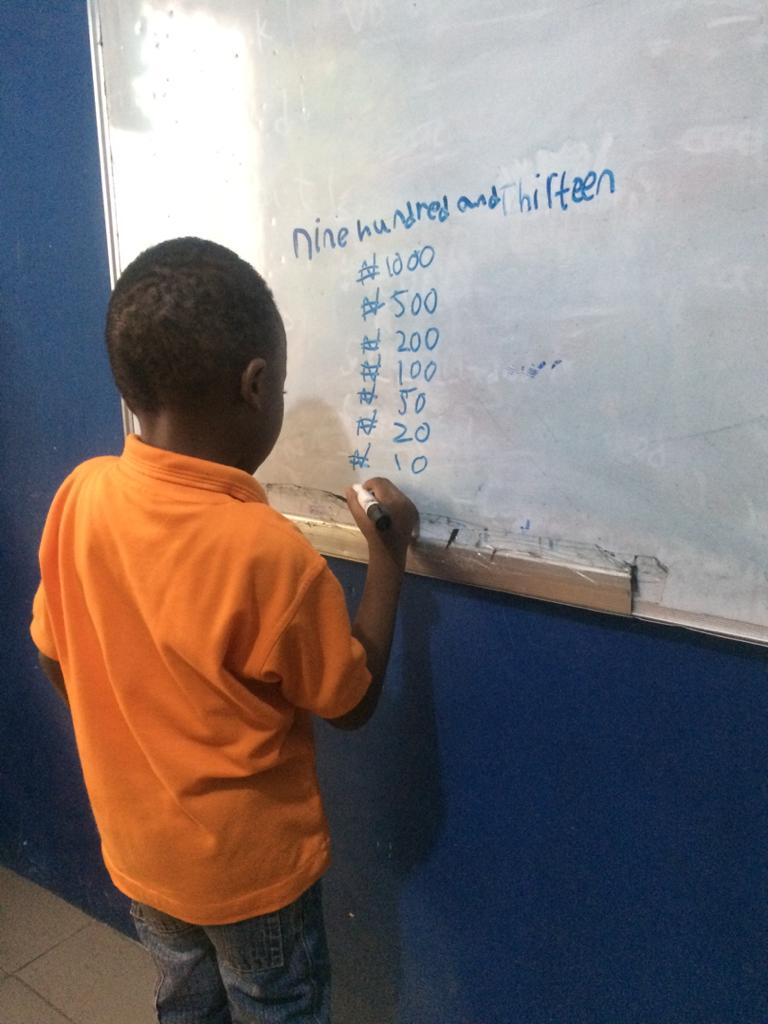 nine hundred and Thirteen
₦ 1000
₦ 500
₦ 200
₦ 100
₦ 50
₦ 20
₦ 10